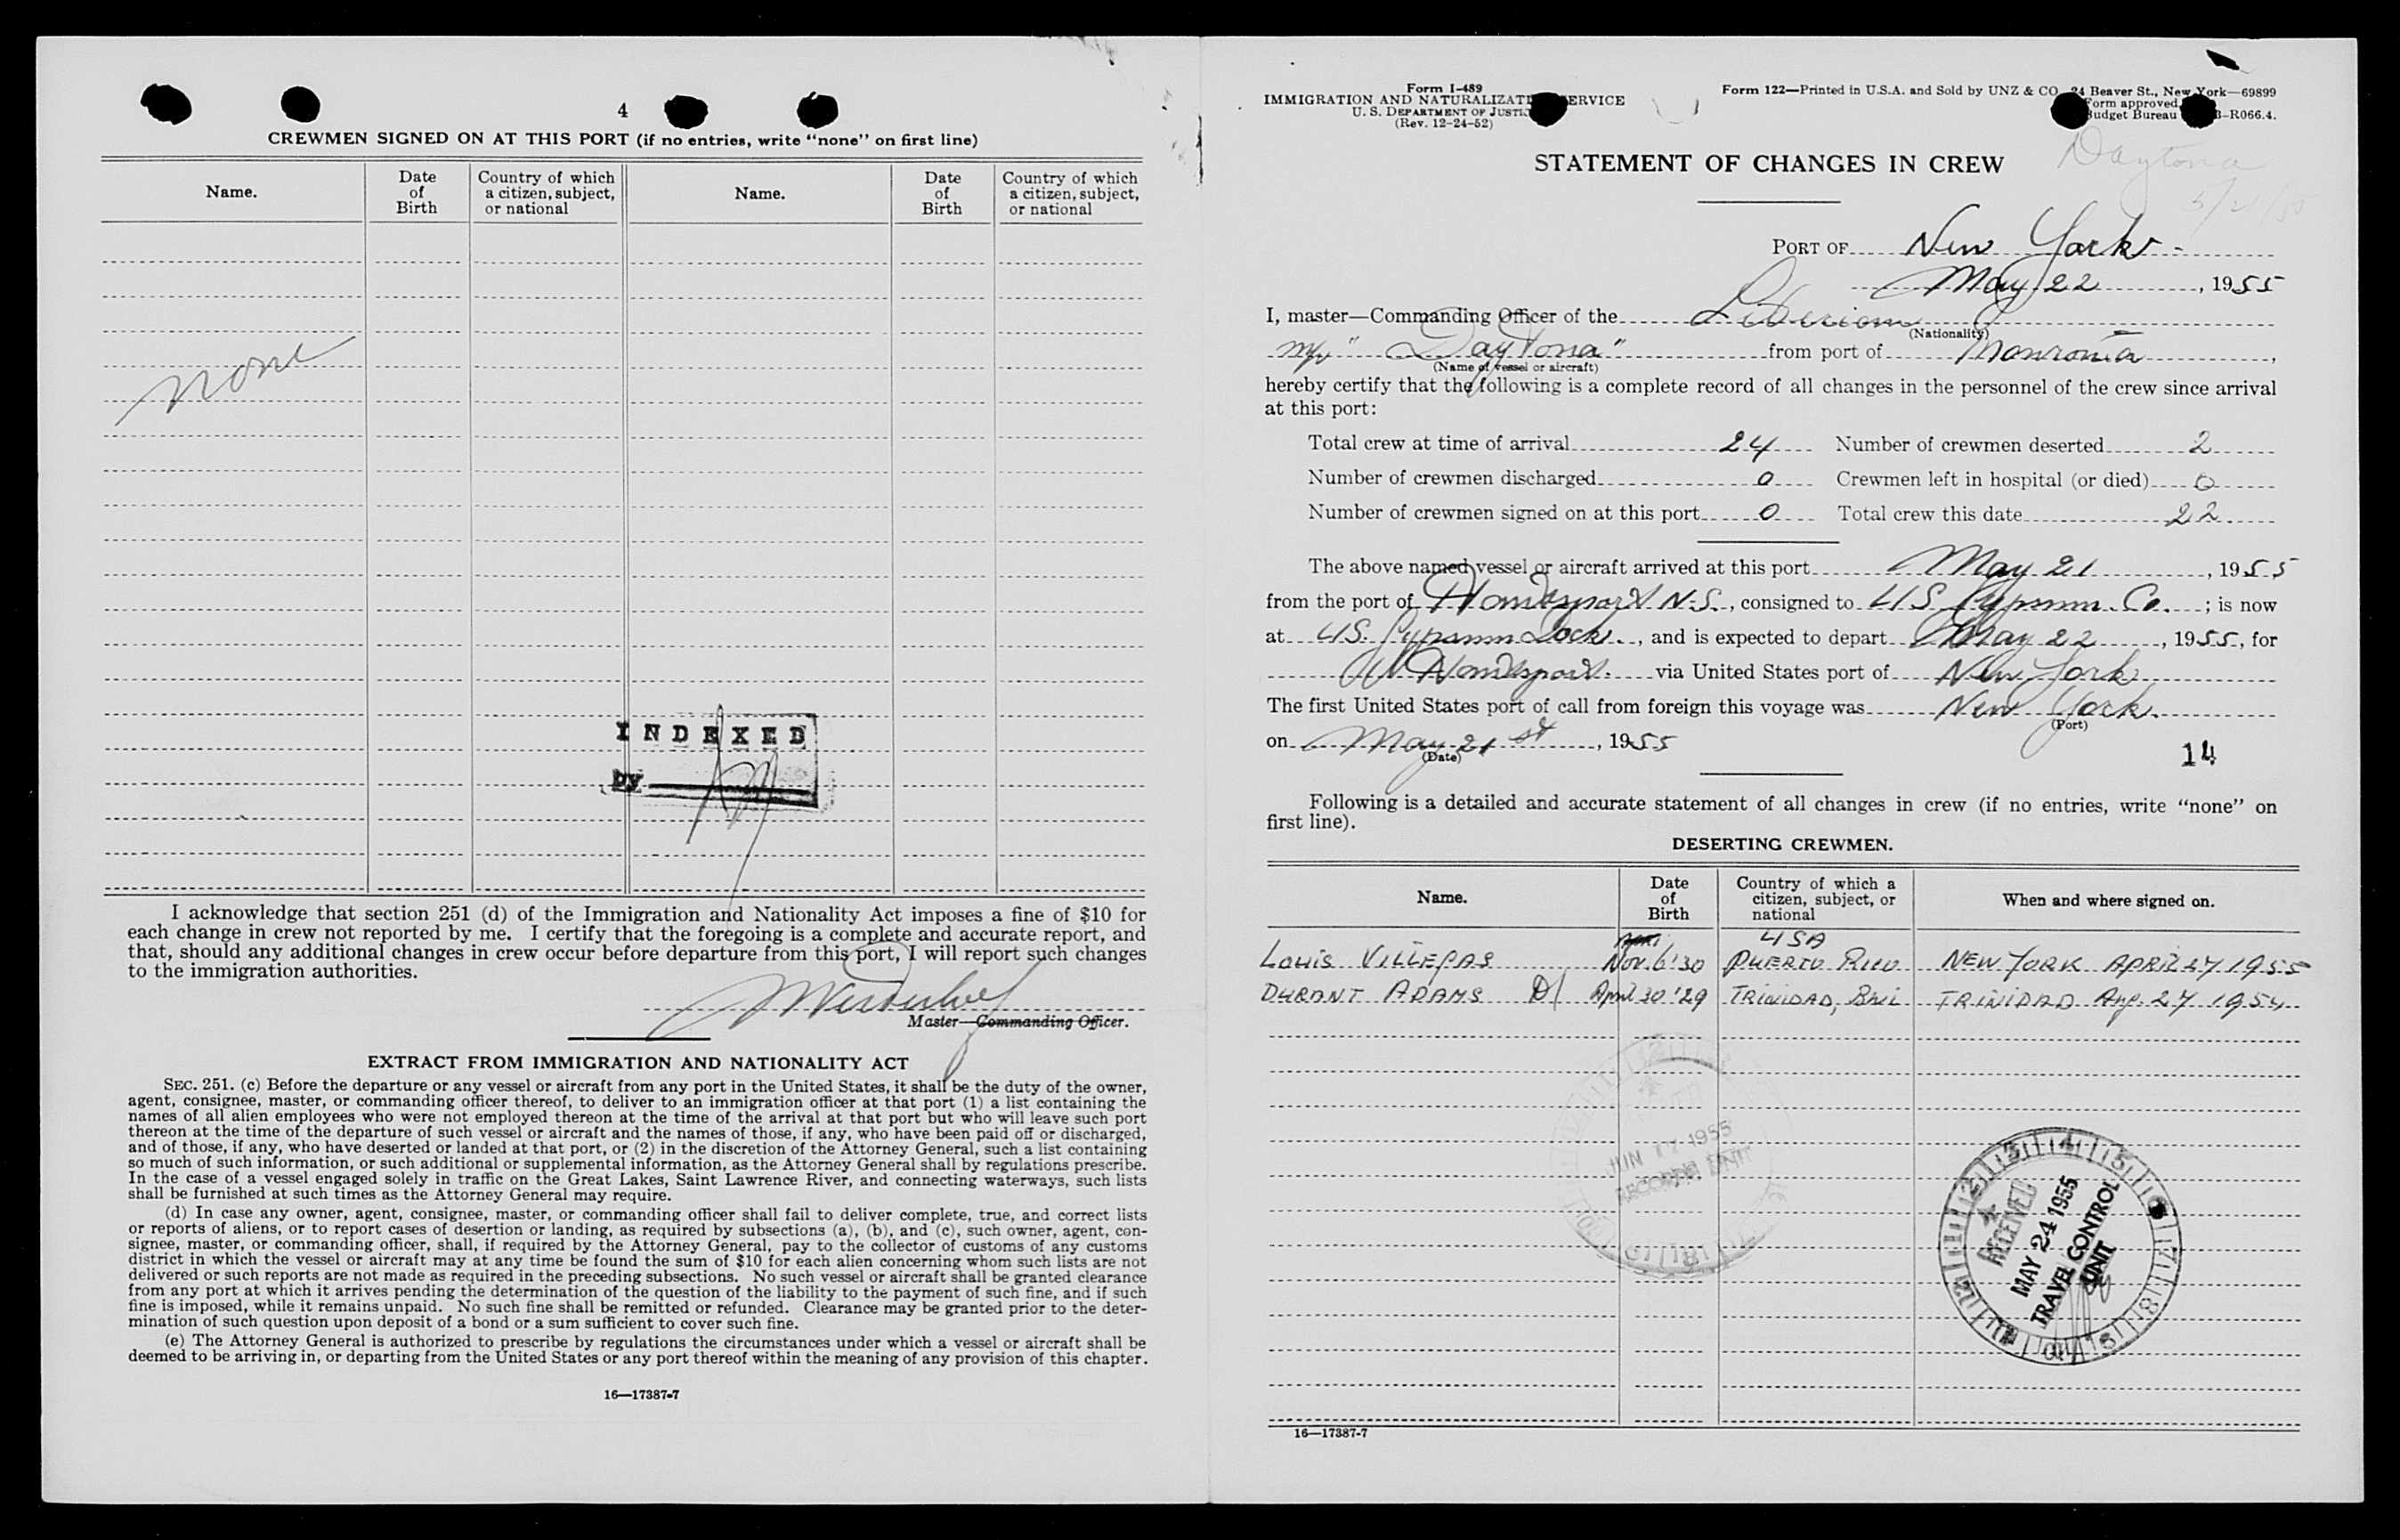 4
CREWMEN SIGNED ON AT THIS PORT (if no entries, write "none" on first line)
Name. Date of Birth Country of which a citizen, subject, or national Name. Date of Birth Country of which a citizen, subject, or national
none
INDEXED
by
I acknowledge that section 251 (d) of the Immigration and Nationality Act imposes a fine of $10 for
each change in crew not reported by me. I certify that the foregoing is a complete and accurate report, and
that, should any additional changes in crew occur before departure from this port, I will report such changes
to the immigration authorities.
Master—Commanding Officer.
EXTRACT FROM IMMIGRATION AND NATIONALITY ACT
SEC. 251. (c) Before the departure or any vessel or aircraft from any port in the United States, it shall be the duty of the owner,
agent, consignee, master, or commanding officer thereof, to deliver to an immigration officer at that port (1) a list containing the
names of all alien employees who were not employed thereon at the time of the arrival at that port but who will leave such port
thereon at the time of the departure of such vessel or aircraft and the names of those, if any, who have been paid off or discharged,
and of those, if any, who have deserted or landed at that port, or (2) in the discretion of the Attorney General, such a list containing
so much of such information, or such additional or supplemental information, as the Attorney General shall by regulations prescribe.
In the case of a vessel engaged solely in traffic on the Great Lakes, Saint Lawrence River, and connecting waterways, such lists
shall be furnished at such times as the Attorney General may require.
(d) In case any owner, agent, consignee, master, or commanding officer shall fail to deliver complete, true, and correct lists
or reports of aliens, or to report cases of desertion or landing, as required by subsections (a), (b), and (c), such owner, agent, con-
signee, master, or commanding officer, shall, if required by the Attorney General, pay to the collector of customs of any customs
district in which the vessel or aircraft may at any time be found the sum of $10 for each alien concerning whom such lists are not
delivered or such reports are not made as required in the preceding subsections. No such vessel or aircraft shall be granted clearance
from any port at which it arrives pending the determination of the question of the liability to the payment of such fine, and if such
fine is imposed, while it remains unpaid. No such fine shall be remitted or refunded. Clearance may be granted prior to the deter-
mination of such question upon deposit of a bond or a sum sufficient to cover such fine.
(e) The Attorney General is authorized to prescribe by regulations the circumstances under which a vessel or aircraft shall be
deemed to be arriving in, or departing from the United States or any port thereof within the meaning of any provision of this chapter.
16—17387-7
Form I-489
IMMIGRATION AND NATURALIZATI ERVICE
U. S. DEPARTMENT OF JUSTI
(Rev. 12-24-52)
Form 122—Printed in U.S.A. and Sold by UNZ & CO 24 Beaver St., New York—69899
Form approved
Budget Bureau -R066.4.
STATEMENT OF CHANGES IN CREW
Daytona
PORT OF New York
May 22, 1955
I, master—Commanding Officer of the Liberian
(Nationality)
"Daytona" from port of Monrovia,
(Name of vessel or aircraft)
hereby certify that the following is a complete record of all changes in the personnel of the crew since arrival
at this port:
Total crew at time of arrival 24 Number of crewmen deserted 2
Number of crewmen discharged 0 Crewmen left in hospital (or died) 0
Number of crewmen signed on at this port 0 Total crew this date 22
The above named vessel or aircraft arrived at this port May 21, 1955
from the port of Hantsport N.S., consigned to U.S. Gypsum Co.; is now
at U.S. Gypsum Dock, and is expected to depart May 22, 1955, for
Hantsport via United States port of New York
The first United States port of call from foreign this voyage was New York.
(Port)
on May 21st, 1955
(Date)
14
Following is a detailed and accurate statement of all changes in crew (if no entries, write "none" on
first line).
DESERTING CREWMEN.
Name. Date of Birth Country of which a citizen, subject, or national When and where signed on.
USA
LOUIS VILLEGAS Nov. 6 '30 PUERTO RICO NEW YORK APRIL 27 1955
DURANT ADAMS April 30 '29 TRINIDAD, BWI TRINIDAD Aug. 27 1954
JUN 17 1955
RECORDS UNIT
RECEIVED
MAY 24 1955
TRAVEL CONTROL
UNIT
16—17387-7